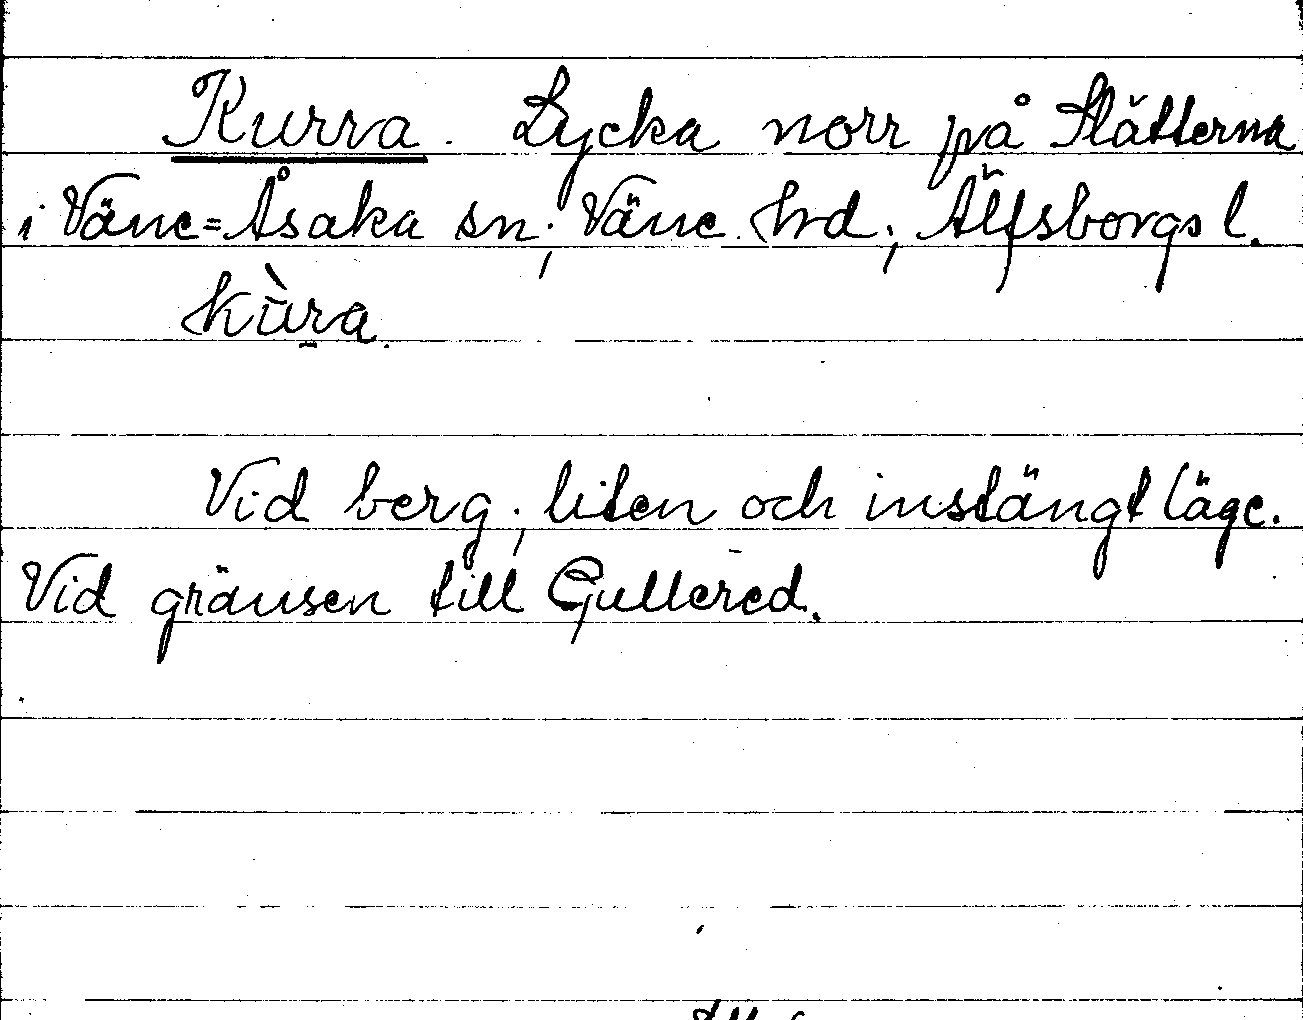 Kurra. Lycka norr på Slätterna
i Väne=Åsaka sn; Väne hrd; Älfsborgs l.
kùra.
Vid berg; liten och instängt läge.
Vid gränsen till Gullered.